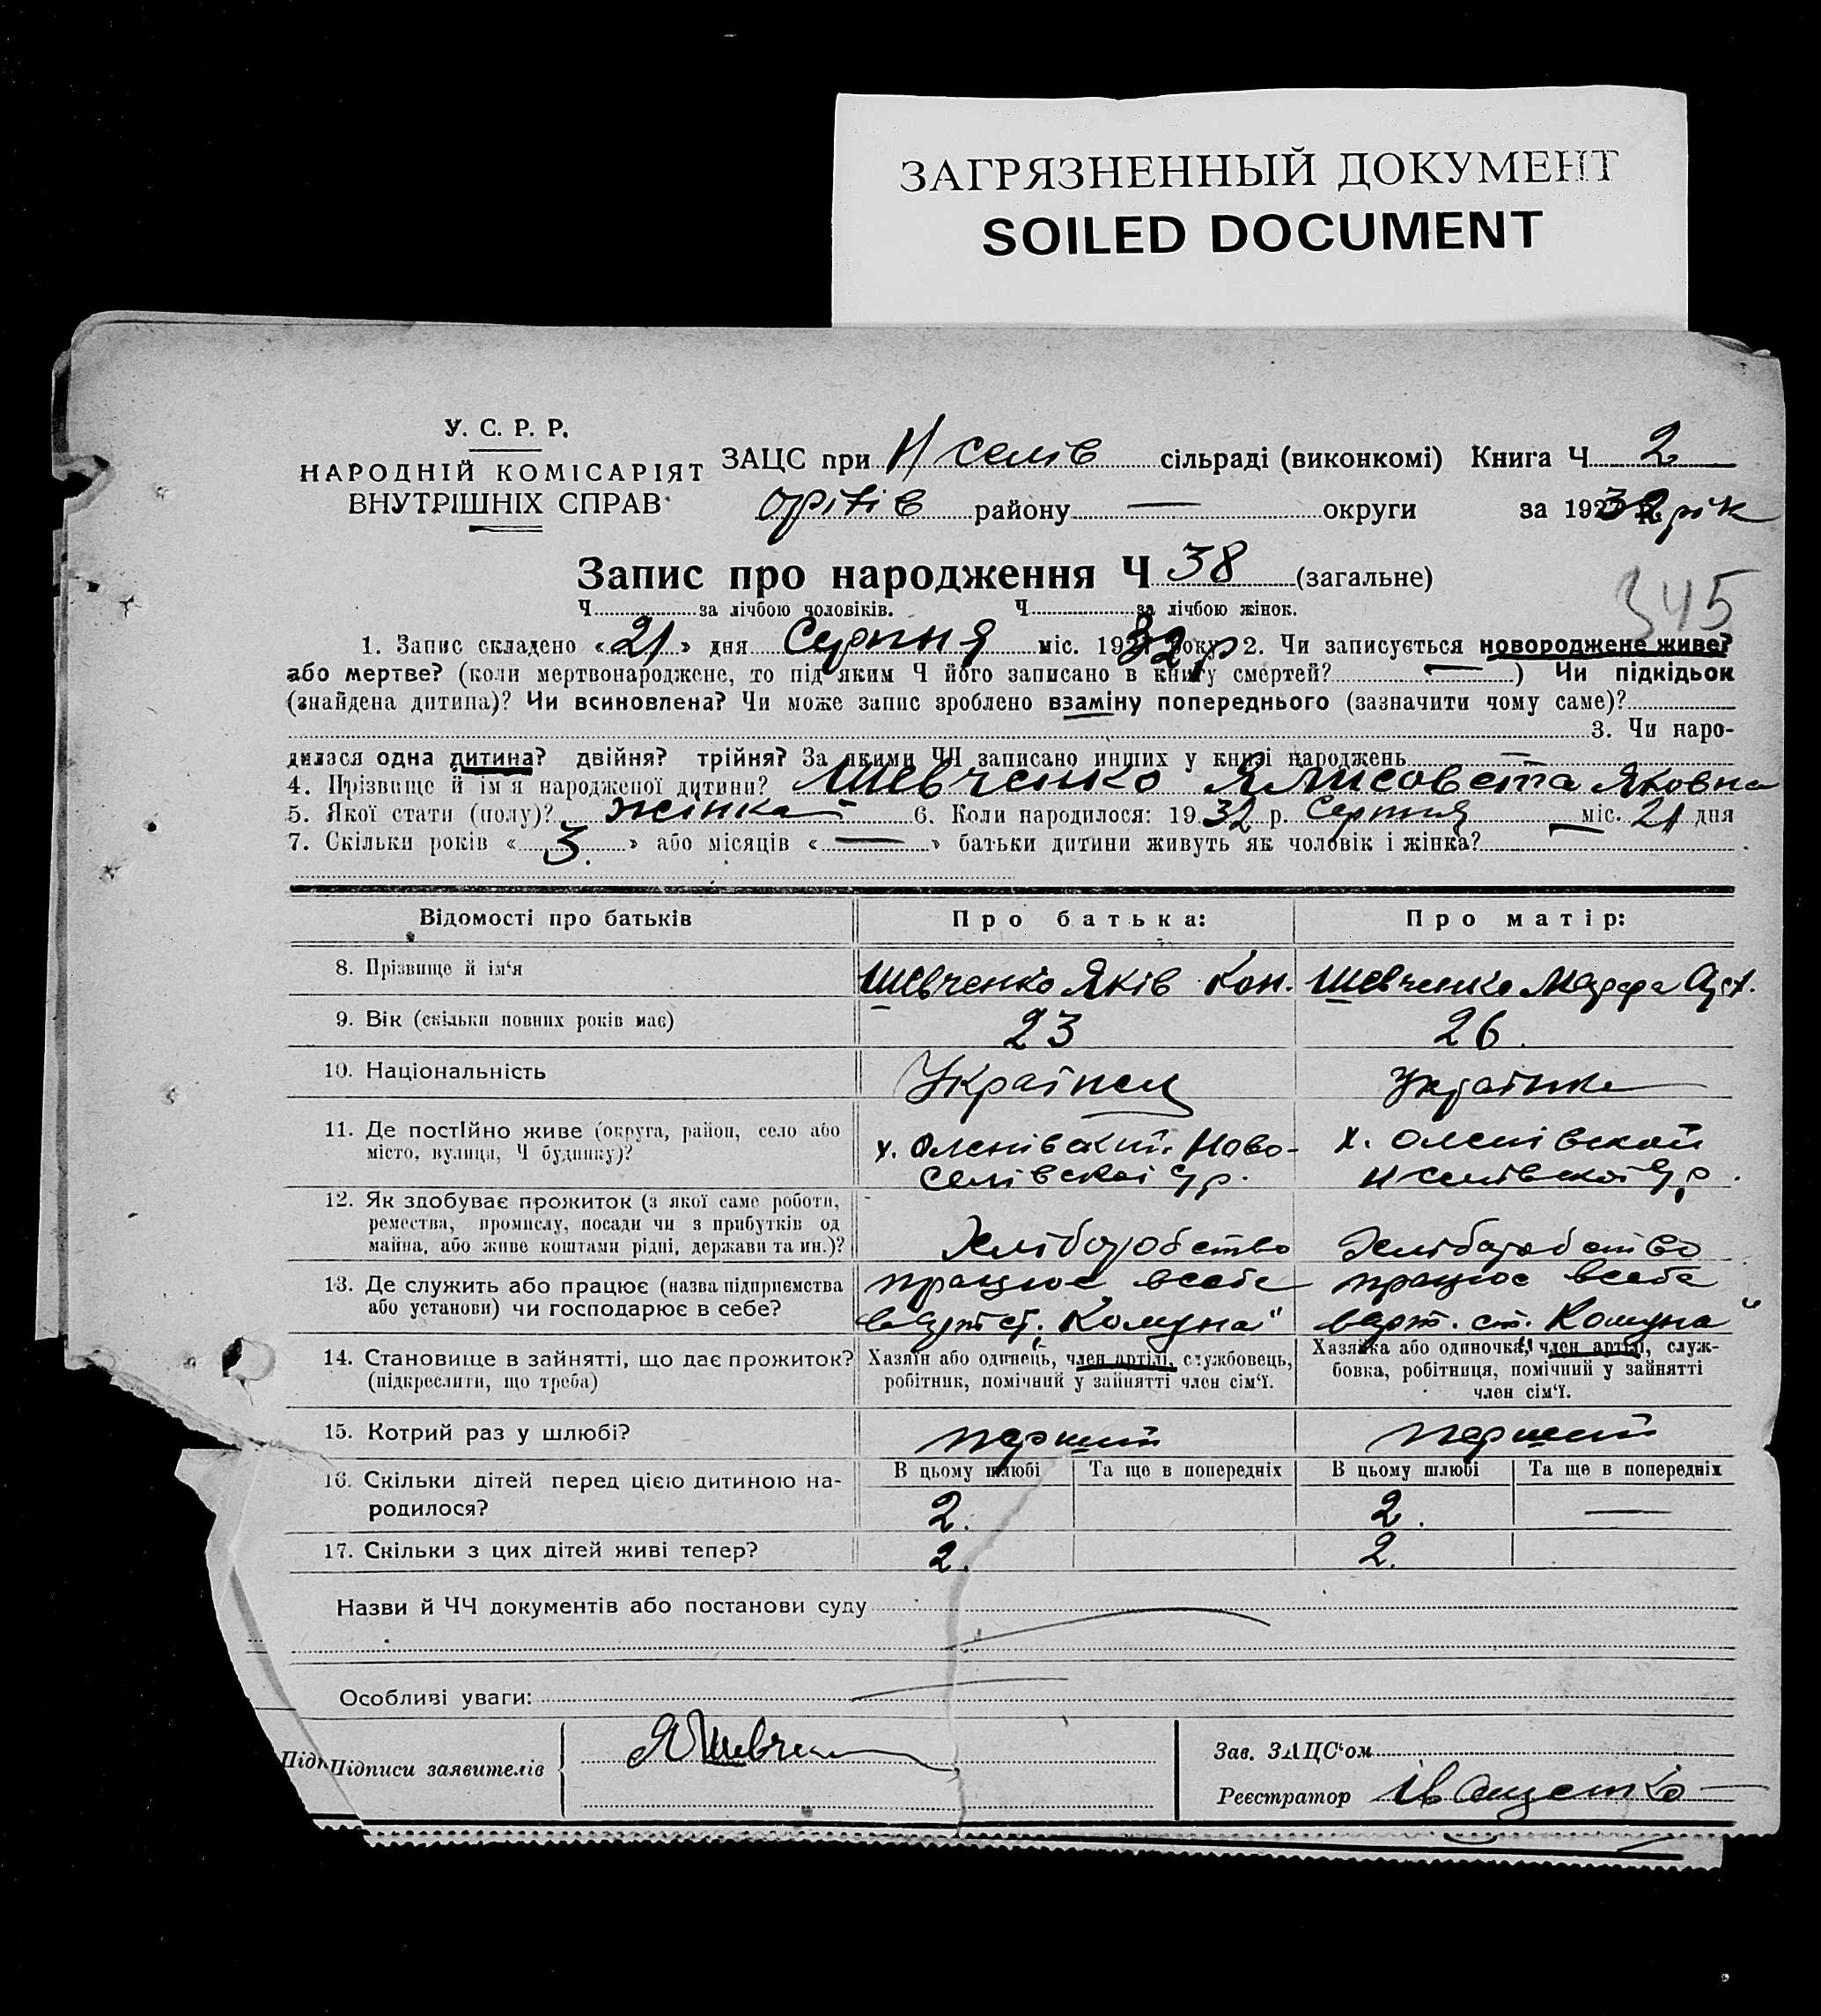 ЗАГРЯЗНЕННЫЙ ДОКУМЕНТ
SOILED DOCUMENT
У. С. Р. Р.
НАРОДНІЙ КОМІСАРІЯТ
ВНУТРІШНІХ СПРАВ
ЗАЦС при Н селів сільраді (виконкомі) Книга Ч 2
оріхів району — округи за 192 32 рік
Запис про народження Ч 38 (загальне)
Ч за лічбою чоловіків. Ч за лічбою жінок.
345
1. Запис складено «21» дня Серпня міс. 192 32 року 2. Чи записується новороджене живе?
або мертве? (коли мертвонароджене, то під яким Ч його записано в книгу смертей? —) Чи підкідьок
(знайдена дитина)? Чи всиновлена? Чи може запис зроблено взаміну попереднього (зазначити чому саме)?
3. Чи наро-
дилася одна дитина? двійня? трійня? За якими ЧЧ записано инших у книзі народжень —
4. Прізвище й ім'я народженої дитини? Шевченко Ялисовета Яковна
5. Якої стати (полу)? жінка 6. Коли народилося: 1932 р. Серпня міс. 21 дня
7. Скільки років «3.» або місяців «—» батьки дитини живуть як чоловік і жінка?
Відомості про батьків Про батька: Про матір:
8. Прізвище й ім'я Шевченко Яків Кон. Шевченко
9. Вік (скільки повних років має) 23 26.
10. Національність Українец Українка
11. Де постійно живе (округа, район, село або
місто, вулиця, Ч будинку)?
х. Оленівский Ново-
селівскої с/р.
х. Оленівской
Н селівскої с/р.
12. Як здобуває прожиток (з якої саме роботи,
ремества, промислу, посади чи з прибутків од
майна, або живе коштами рідні, держави та ин.)?
Хліборобство Хліборобство
13. Де служить або працює (назва підприємства
або установи) чи господарює в себе?
працює всебе
варт ст. „Комуна"
працює всебе
варт. ст. Комуна"
14. Становище в зайнятті, що дає прожиток?
(підкреслити, що треба)
Хазяїн або одинець, член артілі, службовець,
робітник, помічний у зайнятті член сім'ї.
Хазяйка або одиночка, член артілі, служ-
бовка, робітниця, помічний у зайнятті
член сім'ї.
15. Котрий раз у шлюбі? перший перший
16. Скільки дітей перед цією дитиною на-
родилося?
В цьому шлюбі Та ще в попередніх В цьому шлюбі Та ще в попередніх
2. 2. —
17. Скільки з цих дітей живі тепер? 2. 2.
Назви й ЧЧ документів або постанови суду
Особливі уваги:
Підп
Підписи заявителів ЯШевчен
Зав. ЗАЦС'ом
Реєстратор Іващенко